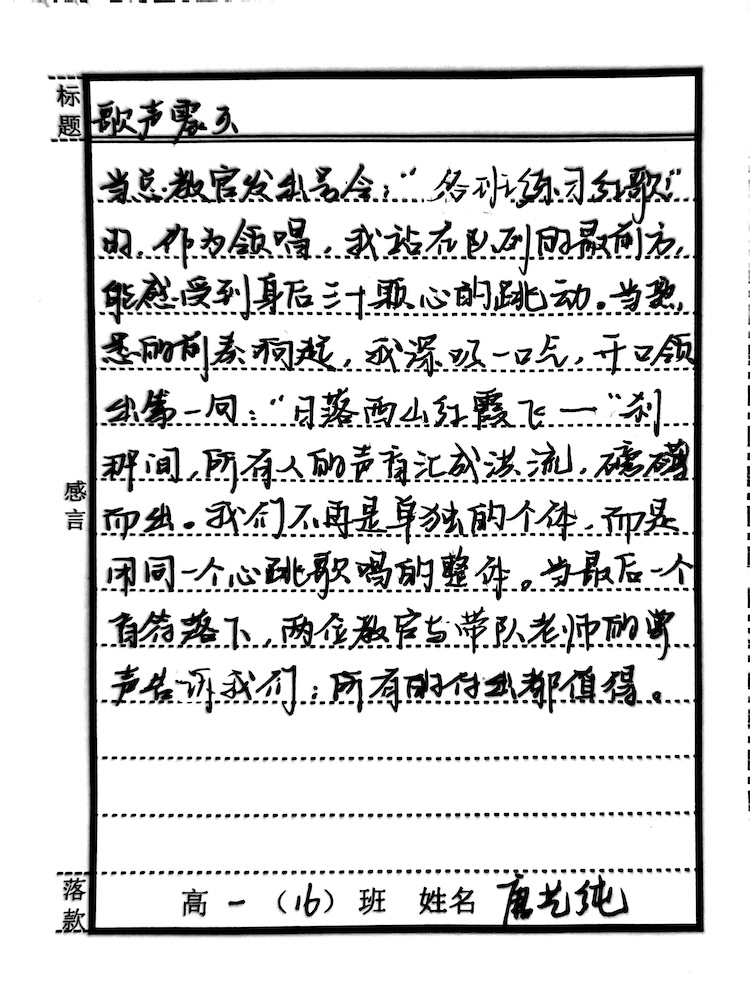 标题
歌声震天
当总教官发出号令：“各班练习红歌”
时，作为领唱，我站在队列的最前方，
能感受到身后三十颗心的跳动。当熟
悉的前奏响起，我深吸一口气，开口领
出第一句：“日落西山红霞飞—”刹
那间，所有人的声音汇成洪流，磅礴
而出。我们不再是单独的个体，而是
用同一个心跳歌唱的整体。当最后一个
音符落下，两位教官与带队老师的掌
声告诉我们：所有的付出都值得。
感言
落款
高一（16）班 姓名 唐艺纯